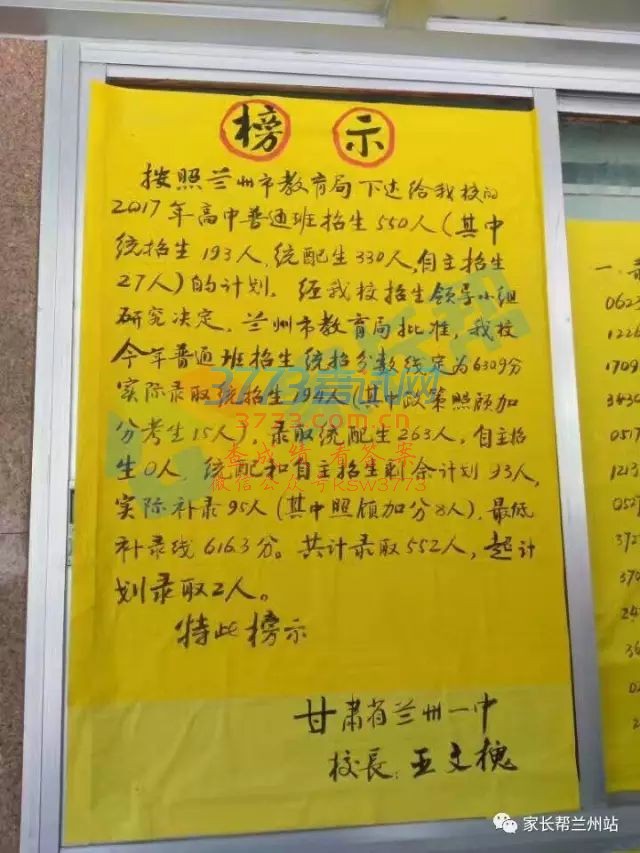 榜示
按照兰州市教育局下达给我校的
2017年高中普通班招生550人(其中
统招生193人,统配生330人,自主招生
27人)的计划。经我校招生领导小组
研究决定,兰州市教育局批准,我校
今年普通班招生统招分数线定为630.9分
实际录取统招生194人(其中政策照顾加
分考生15人),录取统配生263人,自主招
生0人,统配和自主招生剩余计划93人,
实际补录95人(其中照顾加分8人),最低
补录线616.3分。共计录取552人,超计
划录取2人。
特此榜示
甘肃省兰州一中
校長:王文槐
3773考试网
3773.com.cn
查成绩 看答案
微信公众号KSW3773
一、
0623
1226
1709
3430
0517
1213
052
372
370
24
36
02
2
家长帮兰州站